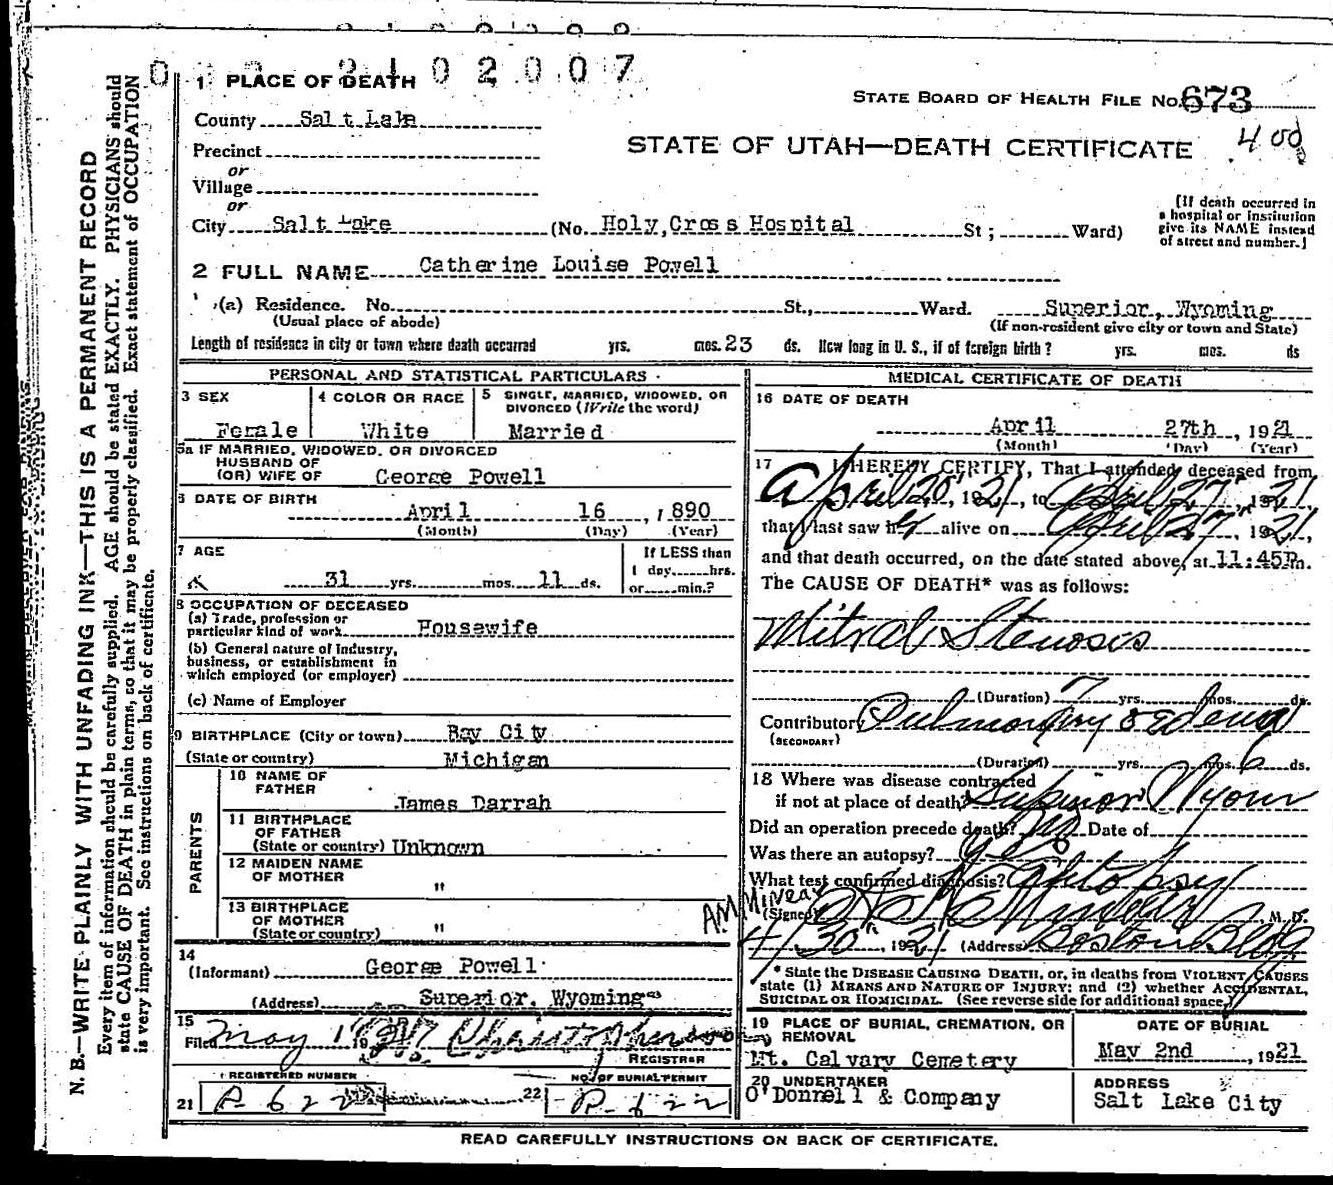 2102007
1 PLACE OF DEATH
STATE BOARD OF HEALTH FILE No. 673
County Salt Lake
400
Precinct
STATE OF UTAH—DEATH CERTIFICATE
or
Village
or
City Salt Lake (No. Holy Cross Hospital St; Ward)
[If death occurred in
a hospital or institution
give its NAME instead
of street and number.]
2 FULL NAME Catherine Louise Powell
(a) Residence. No. St., Ward. Superior, Wyoming
(Usual place of abode) (If non-resident give city or town and State)
Length of residence in city or town where death occurred yrs. mos. 23 ds. How long in U. S., if of foreign birth? yrs. mos. ds
PERSONAL AND STATISTICAL PARTICULARS
3 SEX
Female
4 COLOR OR RACE
White
5 SINGLE, MARRIED, WIDOWED, OR
DIVORCED (Write the word)
Married
5a IF MARRIED, WIDOWED, OR DIVORCED
HUSBAND OF
(OR) WIFE OF George Powell
6 DATE OF BIRTH
April 16, 1890
(Month) (Day) (Year)
7 AGE
31 yrs. mos. 11 ds.
If LESS than
1 day, hrs.
or min.?
8 OCCUPATION OF DECEASED
(a) Trade, profession or
particular kind of work Housewife
(b) General nature of Industry,
business, or establishment in
which employed (or employer)
(c) Name of Employer
9 BIRTHPLACE (City or town) Bay City
(State or country) Michigan
PARENTS
10 NAME OF
FATHER
James Darrah
11 BIRTHPLACE
OF FATHER
(State or country) Unknown
12 MAIDEN NAME
OF MOTHER "
13 BIRTHPLACE
OF MOTHER
(State or country) "
14
(Informant) George Powell
(Address) Superior, Wyoming
15
Filed May 1 19
REGISTRAR
REGISTERED NUMBER
21 P-622
NO. OF BURIAL PERMIT
22 P-622
MEDICAL CERTIFICATE OF DEATH
16 DATE OF DEATH
April 27th, 1921
(Month) (Day) (Year)
17 I HEREBY CERTIFY, That I attended deceased from
April 20, 1921, to April 27, 1921
that I last saw her alive on April 27, 1921,
and that death occurred, on the date stated above, at 11:45P.m.
The CAUSE OF DEATH* was as follows:
Mitral Stenosis
(Duration) 7 yrs. mos. ds.
Contributory Pulmonary oedema
(SECONDARY)
(Duration) yrs. mos. 6 ds.
18 Where was disease contracted
if not at place of death? Superior Wyom
Did an operation precede death? No Date of
Was there an autopsy? yes
What test confirmed diagnosis? Autopsy
(Signed) M. D.
4/30, 1921 (Address) Boston Bldg
* State the DISEASE CAUSING DEATH, or, in deaths from VIOLENT CAUSES
state (1) MEANS AND NATURE OF INJURY; and (2) whether ACCIDENTAL,
SUICIDAL OR HOMICIDAL. (See reverse side for additional space.)
19 PLACE OF BURIAL, CREMATION, OR
REMOVAL
Mt. Calvary Cemetery
DATE OF BURIAL
May 2nd, 1921
20 UNDERTAKER
O'Donnell & Company
ADDRESS
Salt Lake City
READ CAREFULLY INSTRUCTIONS ON BACK OF CERTIFICATE.
N. B.—WRITE PLAINLY WITH UNFADING INK—THIS IS A PERMANENT RECORD
Every item of information should be carefully supplied. AGE should be stated EXACTLY. PHYSICIANS should
state CAUSE OF DEATH in plain terms, so that it may be properly classified. Exact statement of OCCUPATION
is very important. See instructions on back of certificate.